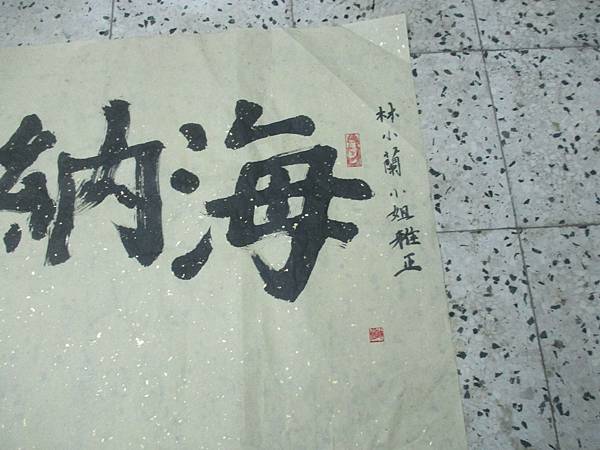 林小蘭小姐雅正
海納